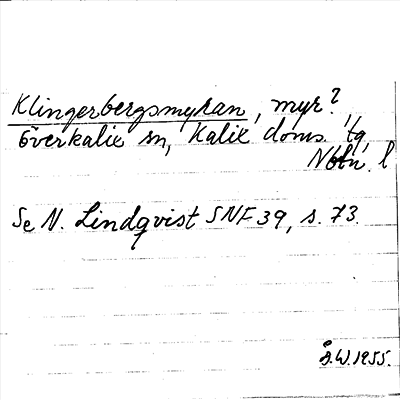 Klingerbergsmyran, myr?,
Överkalix sn, Kalix doms. tg,
Nbtn. l
Se N. Lindqvist SNF 39, s. 73.
Å.W. 1955.